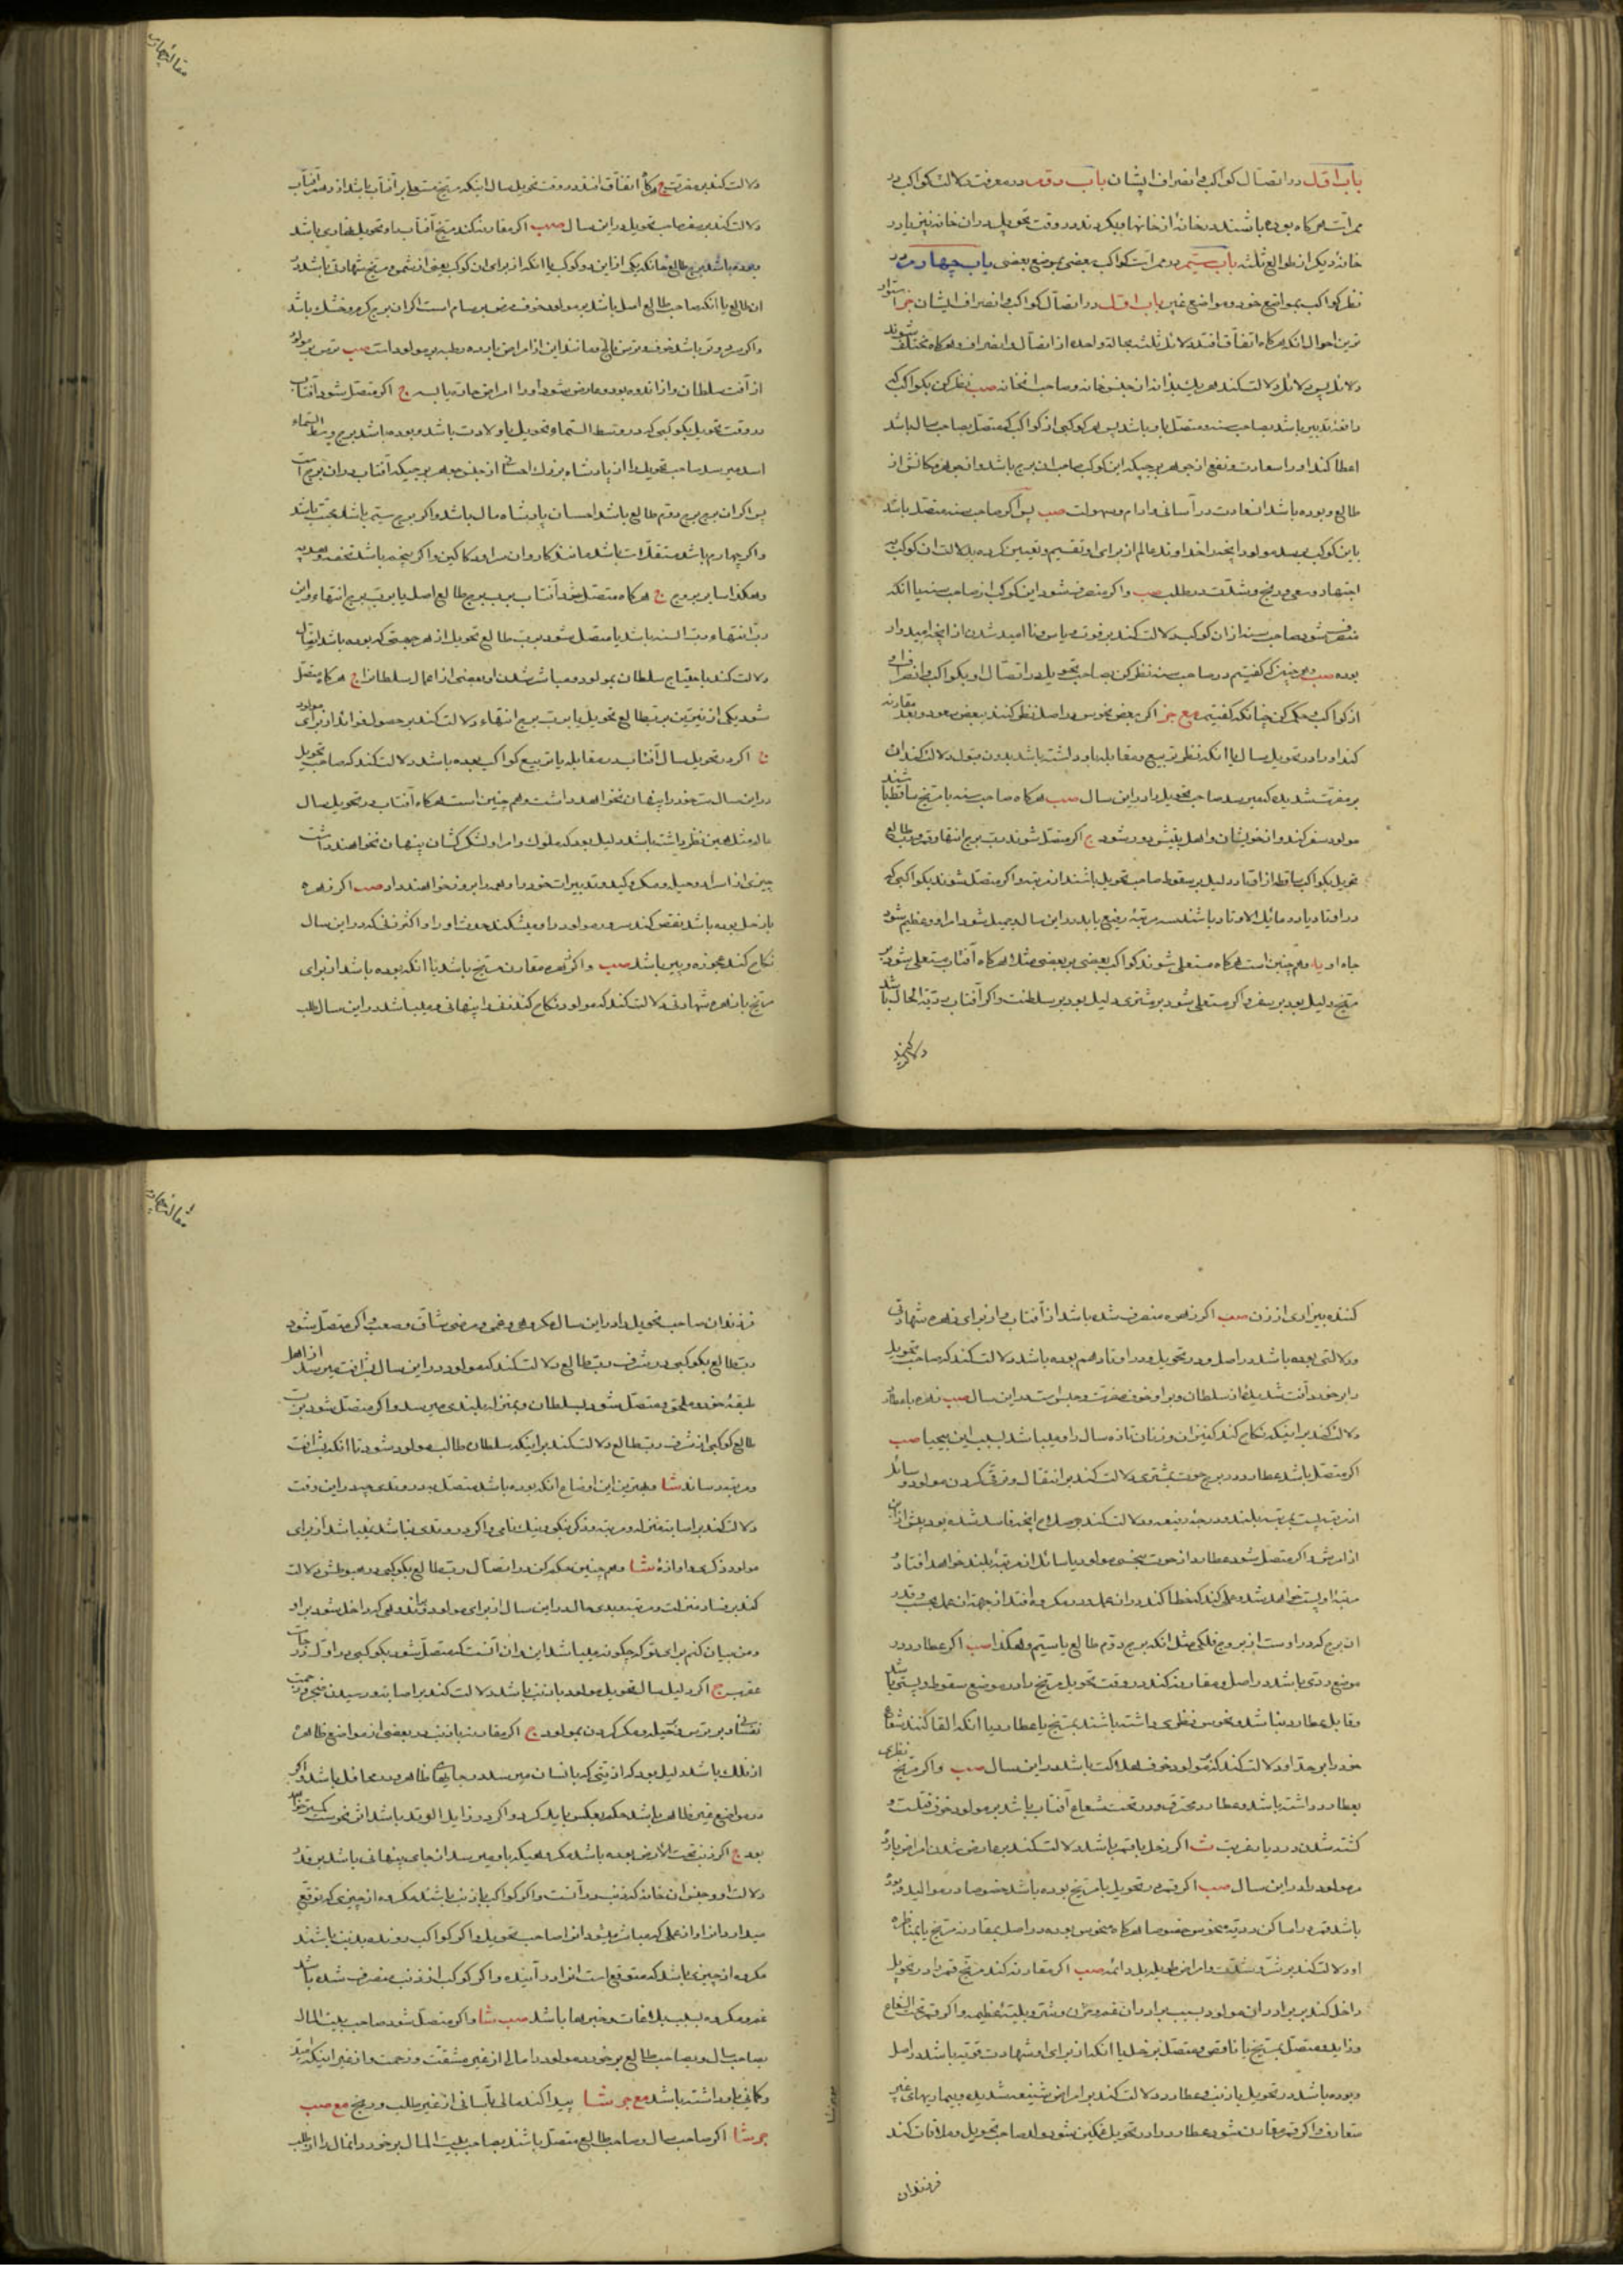 باب اول در اتصال کواکب و انصراف ایشان باب دوم در معرفت دلالت کواکب در
ممرات هرکاه بوده باشند در خانه از خانها و بیکردند در وقت تحویل در ان خانه نیز یا در
خانه دیکر از طوالع ثلثه باب سیم در ممرات کواکب بعضی بموضع بعضی باب چهارم در
نظر کواکب بمواضع خود و مواضع غیر باب اول در اتصال کواکب و انصراف ایشان
ترین احوال انکه هرکاه اتفاق افتد دلائل ثلثه بحالة واحده از اتصال و انصراف و هرکاه مختلف شوند
دلائل پس دلائل دلالت کند هر یک از جنس خانه و صاحب انخانه صب نظر کن بکواکب که
باشد بصاحب سنه و متصل باو باشد پس هر کوکبی از کواکب که متصل بصاحب سال باشد
اعطا کند او را سعادت و نفع از جوهر برجیکه این کوکب صاحب ان برج باشد و از جوهر مکانش از
طالع و بوده باشد این سعادت در آسانی و ارام و سهولت صب پس اکر صاحب سنه متصل باشد
باین کوکب برسد مولود را انچه خداوند عالم از برای او تقسیم و تعیین کرده بدلالت ان کوکب
اجتهاد و سعی و رنج و مشقت در طلب صب و اکر منصرف شود این کوکب از صاحب سنه یا انکه
منصرف شود صاحب سنه از ان کوکب دلالت کند بر فوت و یاس و نا امید شدن از انچه امیدوار
بوده صب و هم چنین که کفتیم در صاحب سنه نظر کن بصاحب تحویل در اتصال او بکواکب و انصراف او
از کواکب و حکم کن چنانکه کفتیم مع جز اکر بعض نحوس در اصل نظر کنند ببعض سعود و بعد مقارنه
کند او را در تحویل سال یا انکه نظر تربیع و مقابله باو داشته باشد بدون قبول دلالت کند ان
بر مضرت شدیدی که میرسد صاحب تحویل را در این سال صب هرکاه صاحب سنه با مریخ ساقط باشند
مولود سفر کند و از خویشان و اهل بیتش دور شود ج اکر متصل شوند رب برج انتها و قمر و رب طالع
تحویل بکواکب ساقط از اوتاد دلیل بر سقوط صاحب تحویل باشند از مرتبه و اکر متصل شوند بکواکبی که
در اوتاد یا در مائل الاوتاد باشند بمرتبه رفیع یابد در این سال و جمیل شود امر او و عظیم شود
جاه او یه و هم چنین است هرکاه مستعلی شوند کواکب بعضی بر بعضی مثلا هرکاه آفتاب مستعلی شود بر
مریخ دلیل بود بر سفر و اکر مستعلی شود بر مشتری دلیل بود بر سلطنت و اکر آفتاب ردیة الحال باشد
دلالت کند
دلالت کند بر مضرت ج و کاه اتفاق افتد در وقت تحویل سال اینکه مریخ مستعلی بر آفتاب باشد
دلالت کند بر سفر صاحب تحویل در این سال صب اکر مقارنه کند مریخ آفتاب را و تحویل نهاری باشد
و بوده باشد برج طالع خانه یکی از این دو کوکب یا انکه از برای ان کوکب یعنی از شمس و مریخ شهادتی باشد در
ان طالع یا انکه صاحب طالع اصل باشد بر مولود خوف مرض برسام است اکر ان برج کرم و خشک باشد
واکر سرد و تر باشد خوف و ترس فالج و مانند این از امراض بارده رطبه بر مولود است صب ترس بر مولود
از آفت سلطان و از اندوه بود و عارض شود او را امراض حاره یابسه ج اکر متصل شود آفتاب
در وقت تحویل بکوکبی که در وسط السماء تحویل یا ولادت باشد و بوده باشد برج وسط السماء
اسد میرسد صاحب تحویل را از پادشاه بزرک احسان از جنس جوهر برجیکه آفتاب در ان برج است
پس اکر ان برج برج دوم طالع باشد احسان پادشاه مال باشد و اکر برج سیم باشد
واکر چهارم باشد مستغلات باشد مانند کاروان سرا و دکاکین و اکر پنجم باشد تحفه و هدیه
وهکذا سایر بروج ج هرکاه متصل شود آفتاب برب برج طالع اصل یا برب برج انتهاء و این
رب انتهاء رب السنه باشد یا متصل شود برب طالع تحویل از هر جهتی که بوده باشد اتصال
دلالت کند باحتیاج سلطان بمولود و مباشر شدن او بعضی از اعمال سلطان را ج هرکاه متصل
شود یکی از نیرین برب طالع تحویل یا برب برج انتهاء دلالت کند بر حصول فوائد از برای مولود
ج اکر در تحویل سال آفتاب در مقابله یا تربیع کواکب بوده باشد دلالت کند که صاحب تحویل
در این سال سر خود را پنهان نخواهد داشت و هم چنین است هرکاه آفتاب در تحویل سال
عالم مثل همین نظر داشته باشد دلیل بود که ملوک و امرا و لشکر کشان پنهان نخواهند داشت
چیزی از اسرار و حیل و مکر و کید و تدبیرات خود را و همه را بروز خواهند داد صب اکر زهره
با زحل بوده باشد نقص کند سرور مولود را و میشکند حدت او را و اکثر زنی که در این سال
نکاح کند عجوزه و پیر باشد صب و اکر زهره مقارن مریخ باشد یا انکه بوده باشد از برای
مریخ با زهره شهادتی دلالت کند که مولود نکاح کند زنی را پنهانی و میباشد در این سال طلب
کننده بیزاری از زن صب اکر زهره منصرف شده باشد از آفتاب و از برای زهره شهادتی
و دلالتی بوده باشد در اصل و در تحویل و در اوتاد هم بوده باشد دلالت کند که صاحب تحویل
را برخورد آفت شدیدی از سلطان و بر او خوف مضرت و حبس است در این سال صب زهره با عطارد
دلالت کند بر اینکه نکاح کند کنیزان و زنان تازه سال را و میباشد بسبب این بیحیا صب
اکر متصل باشد عطارد در برج حوت بمشتری دلالت کند بر انتقال و ترقی کردن مولود و سائل
از مرتبه پست بمرتبه بلند و درجه رفیعه و دلالت کند بر صلاح انچه فاسد شده بود پیش از این
از امرش و اکر متصل شود عطارد از حوت بنحسی مولود یا سائل از مرتبه بلند خواهد افتاد و
مرتبه او پست خواهد شد و عملی کند که خطا کند در ان عمل و در مکروه افتد از جهة ان عمل بحسب و قدر
ان برج که در اوست از بروج فلکی مثل انکه برج دوم طالع یا سیم و هکذا صب اکر عطارد در
موضع ردی باشد در اصل و مقارنه کند در وقت تحویل مریخ را در موضع سقوط و پستی باشد
و قابل عطارد نباشد و نحوس نظری داشته باشند بمریخ یا عطارد یا انکه القا کنند شعاع
خود را بر حد او دلالت کند که بر مولود خوف هلاکت باشد در این سال صب و اکر مریخ نظری
بعطارد داشته باشد و عطارد محترق و در تحت شعاع آفتاب باشد بر مولود خوف قتلست و
کشته شدن در دیار غربت ث اکر زحل با قمر باشد دلالت کند بر عارض شدن امراض بارده
مر مولود را در این سال صب اکر قمر در تحویل با مریخ بوده باشد خصوصا در موالید و بوده
باشد قمر در اماکن ردیه منحوس خصوصا هرکاه منحوس بوده در اصل بمقارنه مریخ یا بمناظره
او دلالت کند بر شر و شدت و امراض طویله دائمه صب اکر مقارنه کند مریخ قمر را در تحویل
داخل کند بر برادران مولود و بسبب برادران غم و حزن و شر و بلیه عظیمه و اکر قمر تحت الشعاع
و زاید و متصل بمریخ یا ناقص و متصل بزحل یا انکه از برای او شهادت قویه باشد در اصل
و بوده باشد در تحویل با ذنب و عطارد دلالت کند بر امراض شنیعه شدیده و بیماریهای غیر
متعارف و اکر قمر مقارن شود عطارد را در تحویل غمکین شود ولد صاحب تحویل و ملاقات کند
فرزندان
فرزندان صاحب تحویل را در این سال مکروهی و غمی و مرضی شاق و صعب و اکر متصل شود
رب طالع بکوکبی در شرف رب طالع دلالت کند که مولود در این سال بشرافت میرسد از اهل
طبقه خود و ملحق و متصل شود بسلطان و بمنزله بلندی میرسد و اکر متصل شود برب
طالع کوکبی از شرف رب طالع دلالت کند بر اینکه سلطان طالب مولود شود تا انکه بشرافت
و مرتبه رساند شا و بهترین این اوضاع انکه بوده باشد متصل به در وتدی چه در این وقت
دلالت کند بر اصابت منزله و مرتبه و ذکر نیکو و نیک نامی و اکر در وتدی نباشد نمیباشد از برای
مولود ذکری و اوازه شا و هم چنین حکم کن در اتصال رب طالع بکوکبی در هبوطش و دلالت
کند بر فساد منزلت و مرتبه و بدی حال در این سال از برای مولود و اندوهی که داخل شود بر او
ومن بیان کنم برای تو که چکونه میباشد این بدان آنست که متصل شود بکوکبی در اول درجات
عقرب ج اکر دلیل سال تحویل مولود با ذنب باشد دلالت کند بر اصابت و رسیدن ضجر و زحمت
نفسانی و بر ترس و حیله و مکر کردن بمولود ج اکر مقارنه با ذنب در بعضی از مواضع ظاهره
از فلک باشد دلیل بود که اذیتی که بانسان میرسد در جاهای ظاهر و در محافل باشد و اکر
در مواضع غیر ظاهر باشد حکم بعکس باید کرد و اکر در زایل الوتد باشد اثر نحوست کمتر خواهد
بود ج اکر ذنب تحت الارض بوده باشد مکروهیکه باو میرسد از جای پنهانی باشد بر قدر
دلالت او و جنس ان خانه که ذنب در آنست و اکر کواکب با ذنب باشند مکروه از چیزی که توقع
میدارد انرا و از عملی که مباشر میشود انرا صاحب تحویل و اکر کواکب رونده بذنب باشند
مکروه از چیزی باشد که متوقع است انرا در آینده و اکر کوکب از ذنب منصرف شده باشد
غم و مکروه بسبب بلاغات و خبرها باشد صب شا و اکر متصل شود صاحب بیت المال
بصاحب سال و بصاحب طالع برخورد مولود را مالی از غیر مشقت و زحمت و از غیر اینکه امید
و کمانی باو داشته باشد مع جر شا پیدا کند مالی بآسانی از غیر طلب و رنج مع صب
جر شا اکر صاحب سال و صاحب طالع متصل باشند بصاحب بیت المال برخورد انمال را از طلب